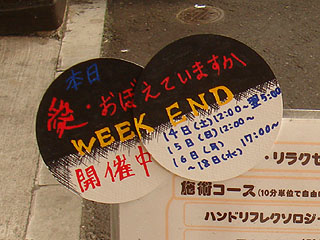 本日
愛・おぼえていますか
WEEK END
開催中
14日(土)12:00~翌5:00
15日(日)12:00~
16日(月)
~18日(水) 17:00~
・リラクゼ
施術コース (10分単位で自由
ハンドリフレクソロジー